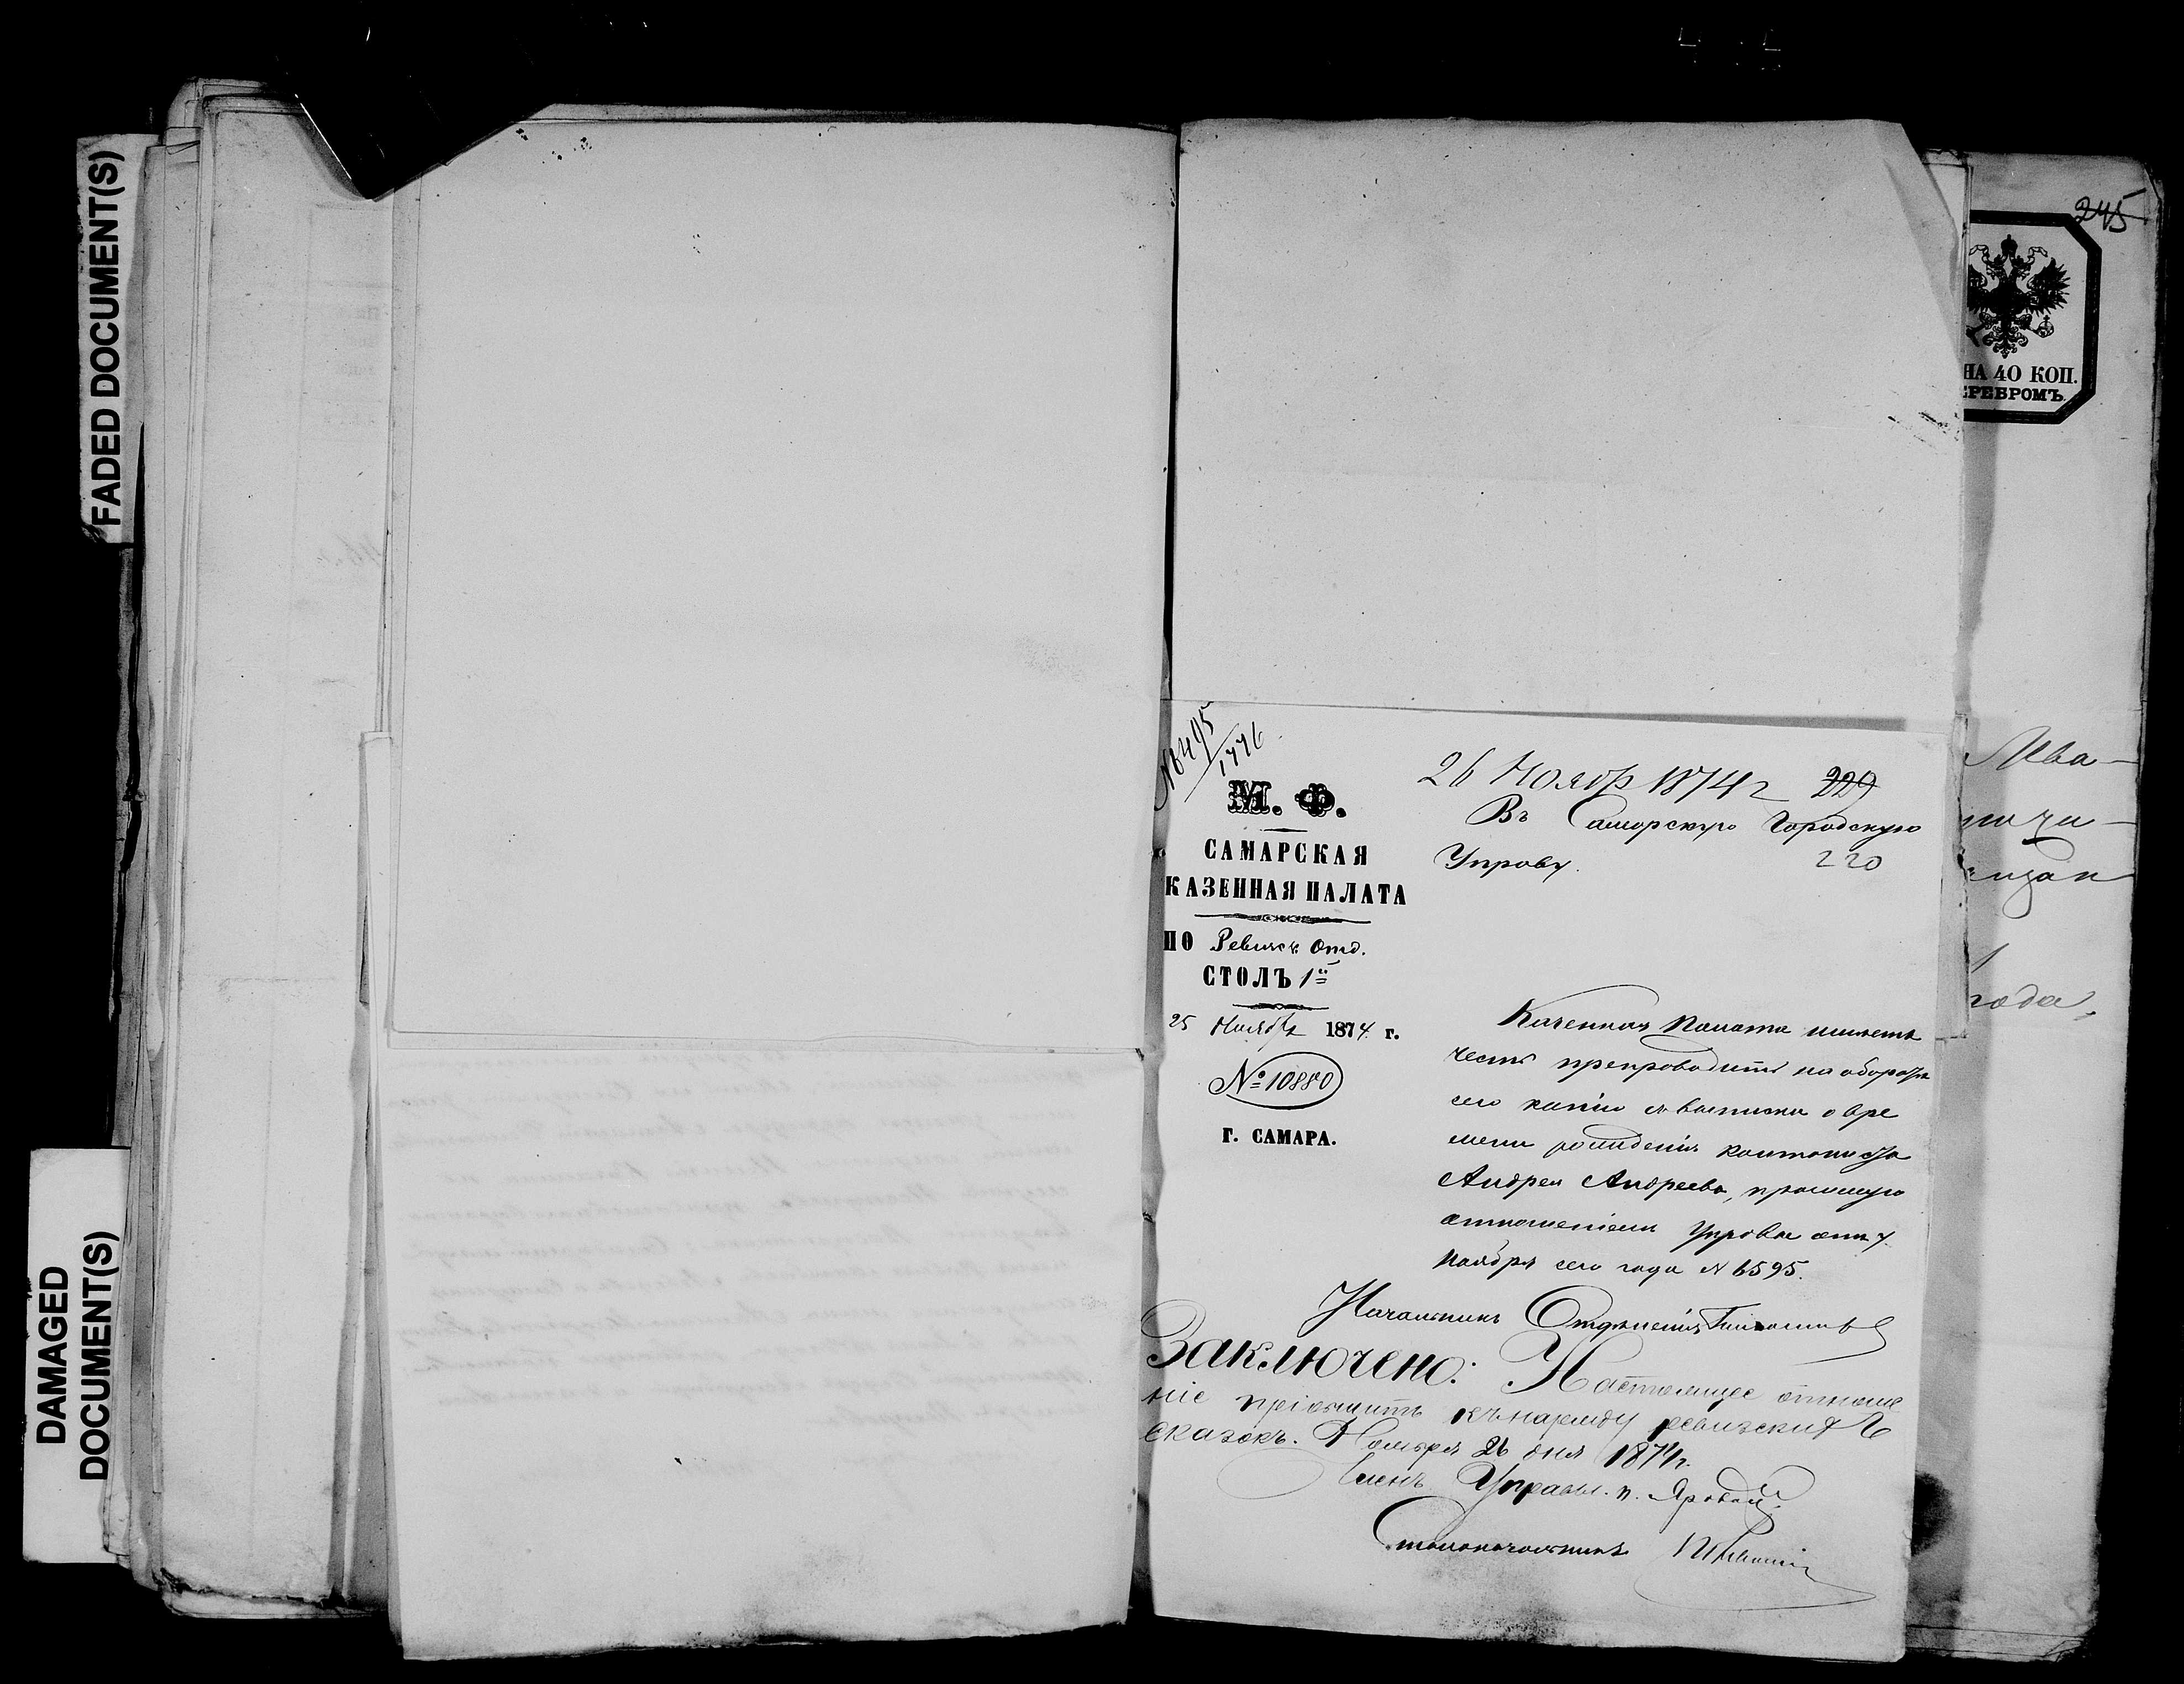 FADED DOCUMENT(S)
DAMAGED
DOCUMENT(S)
245
НА 40 КОП.
СЕРЕБРОМЪ.
года,
№ 495/1776
М. Ф.
САМАРСКАЯ
КАЗЕННАЯ ПАЛАТА
ПО Ревизск. Отд.
СТОЛЪ 1й
25 Ноября 1874 г.
№ 10880
Г. САМАРА.
26 Ноябр 1874 г 229
Въ Самарскую Городскую
Управу. 220
Казенная Палата имѣетъ
честь препроводить на оборотѣ
сего копію съ выписки о вре
мени рожденія кантониста
Андрея Андреева, просимую
отношеніемъ Управы отъ 7
Ноября сего года № 6595.
Начальникъ Отдѣленія
Заключено: Настоящее отноше
ніе пріобщить къ наряду ревизскихъ
сказокъ. Ноября 26 дня 1874 г.
Членъ Управы П. Яровой
Столоначальникъ